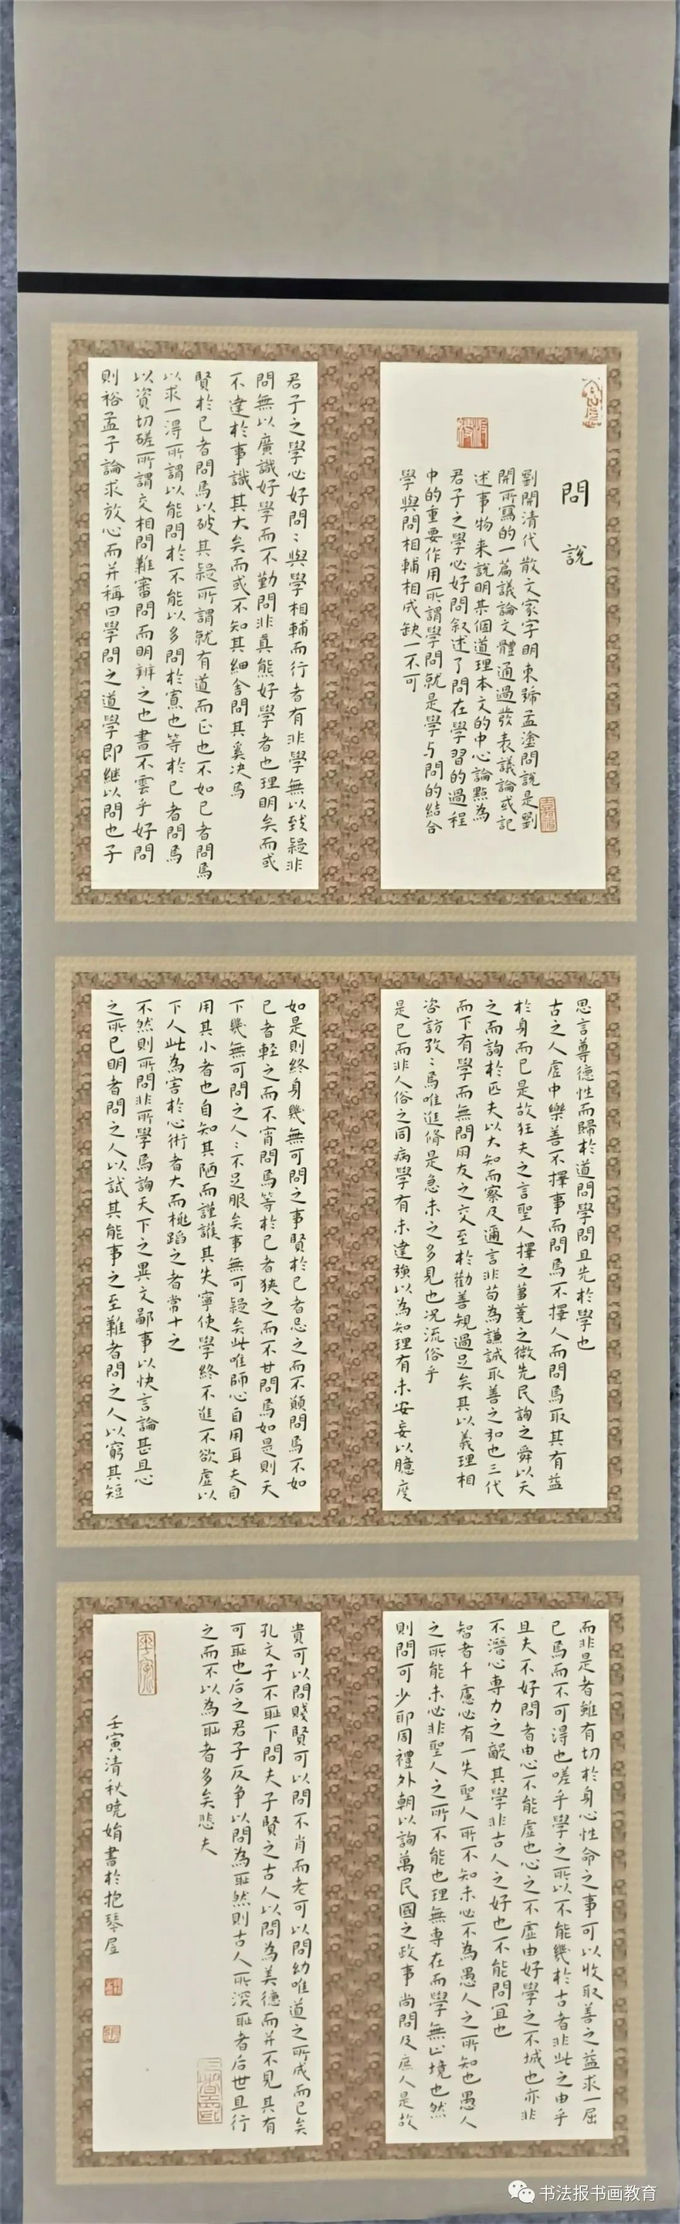 問說
劉開清代散文家字明東號孟塗問說是劉
開所寫的一篇議論文體通過發表議論或記
述事物来說明某個道理本文的中心論點為
君子之學必好問叙述了問在學習的過程
中的重要作用所謂學問就是學与問的結合
學與問相輔相成缺一不可
君子之學必好問〻與學相輔而行者有非學無以致疑非
問無以廣識好學而不勤問非真能好學者也理明矣而或
不達於事識其大矣而或不知其細舍問其奚决焉
賢於已者問焉以破其疑所謂就有道而正也不如已者問焉
以求一得所謂以能問於不能以多問於寡也等於已者問焉
以資切磋所謂交相問難審問而明辨之也書不雲乎好問
則裕孟子論求放心而并稱曰學問之道學即继以問也子
思言尊德性而歸於道問學問且先於學也
古之人虚中樂善不擇事而問焉不擇人而問焉取其有益
於身而已是故狂夫之言聖人擇之芻蕘之微先民詢之舜以天
之而詢於匹夫以大知而察及邇言非苟為謙誠取善之弘也三代
而下有學而無問朋友之交至於勸善規過足矣其以義理相
咨訪孜〻焉唯進脩是急未之多見也况流俗乎
是已而非人俗之同病學有未達強以為知理有未安妄以臆度
如是則終身幾無可問之事賢於已者忌之而不願問焉不如
已者輕之而不宵問焉等於已者狹之而不甘問焉如是則天
下幾無可問之人〻不足服矣事無可疑矣此唯師心自用耳夫自
用其小者也自知其陋而謹護其失寧使學終不進不欲虚以
下人此為害於心術者大而桃蹈之者常十之
不然則所問非所學焉詢天下之異文鄙事以快言論甚且心
之所已明者問之人以試其能事之至難者問之人以窮其短
而非是者雖有切於身心性命之事可以收取善之益求一屈
已焉而不可得也嗟乎學之所以不能幾於古者非此之由乎
且夫不好問者由心不能虚也心之不虚由好學之不城也亦非
不潛心專力之敵其學非古人之好也不能問宜也
智者千慮必有一失聖人所不知未必不為愚人之所知也愚人
之所能未必非聖人之所不能也理無専在而學無止境也然
則問可少耶周禮外朝以詢萬民國之政事尚問及庶人是故
貴可以問賤賢可以問不肖而老可以問幼唯道之所成而已矣
孔文子不恥下問夫子賢之古人以問為美德而并不見其有
可恥也后之君子反争以問為恥然則古人所深恥者后世且行
之而不以為恥者多矣悲夫
壬寅清秋曉娟書於抱琴屋
书法报书画教育